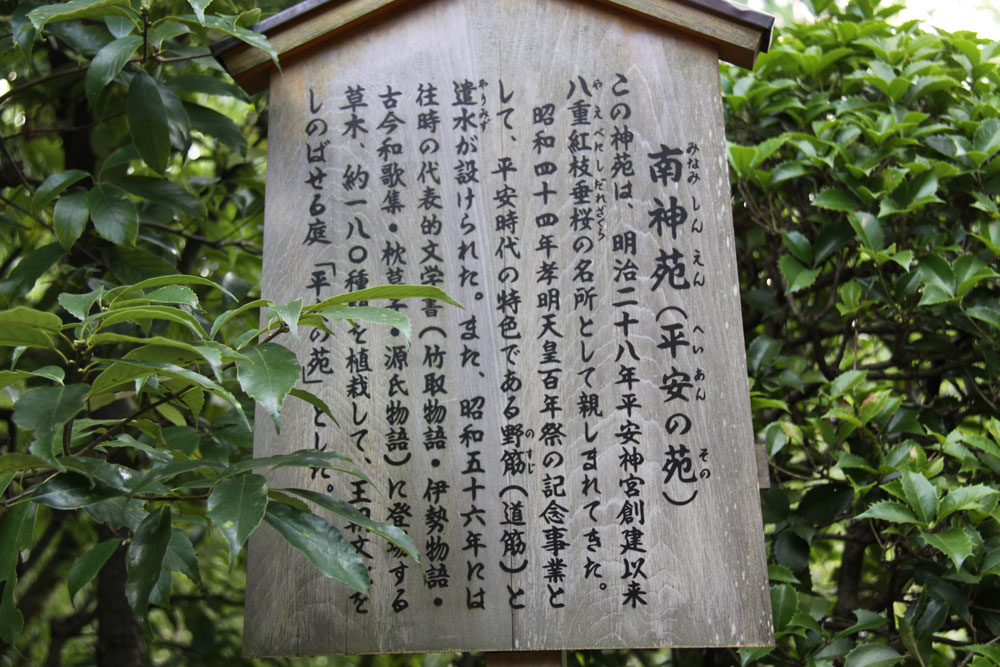 みなみ しん えん へい あん その
南神苑(平安の苑)
この神苑は、明治二十八年平安神宮創建以来
やえべにしだれざくら
八重紅枝垂桜の名所として親しまれてきた。
昭和四十四年孝明天皇百年祭の記念事業と
のすじ
して、平安時代の特色である野筋(道筋)と
やりみず
遣水が設けられた。また、昭和五十六年には
往時の代表的文学書(竹取物語・伊勢物語・
古今和歌集・枕草子・源氏物語)に登場する
草木、約一八〇種を植栽して、王朝文を
しのばせる庭「平安の苑」とした。